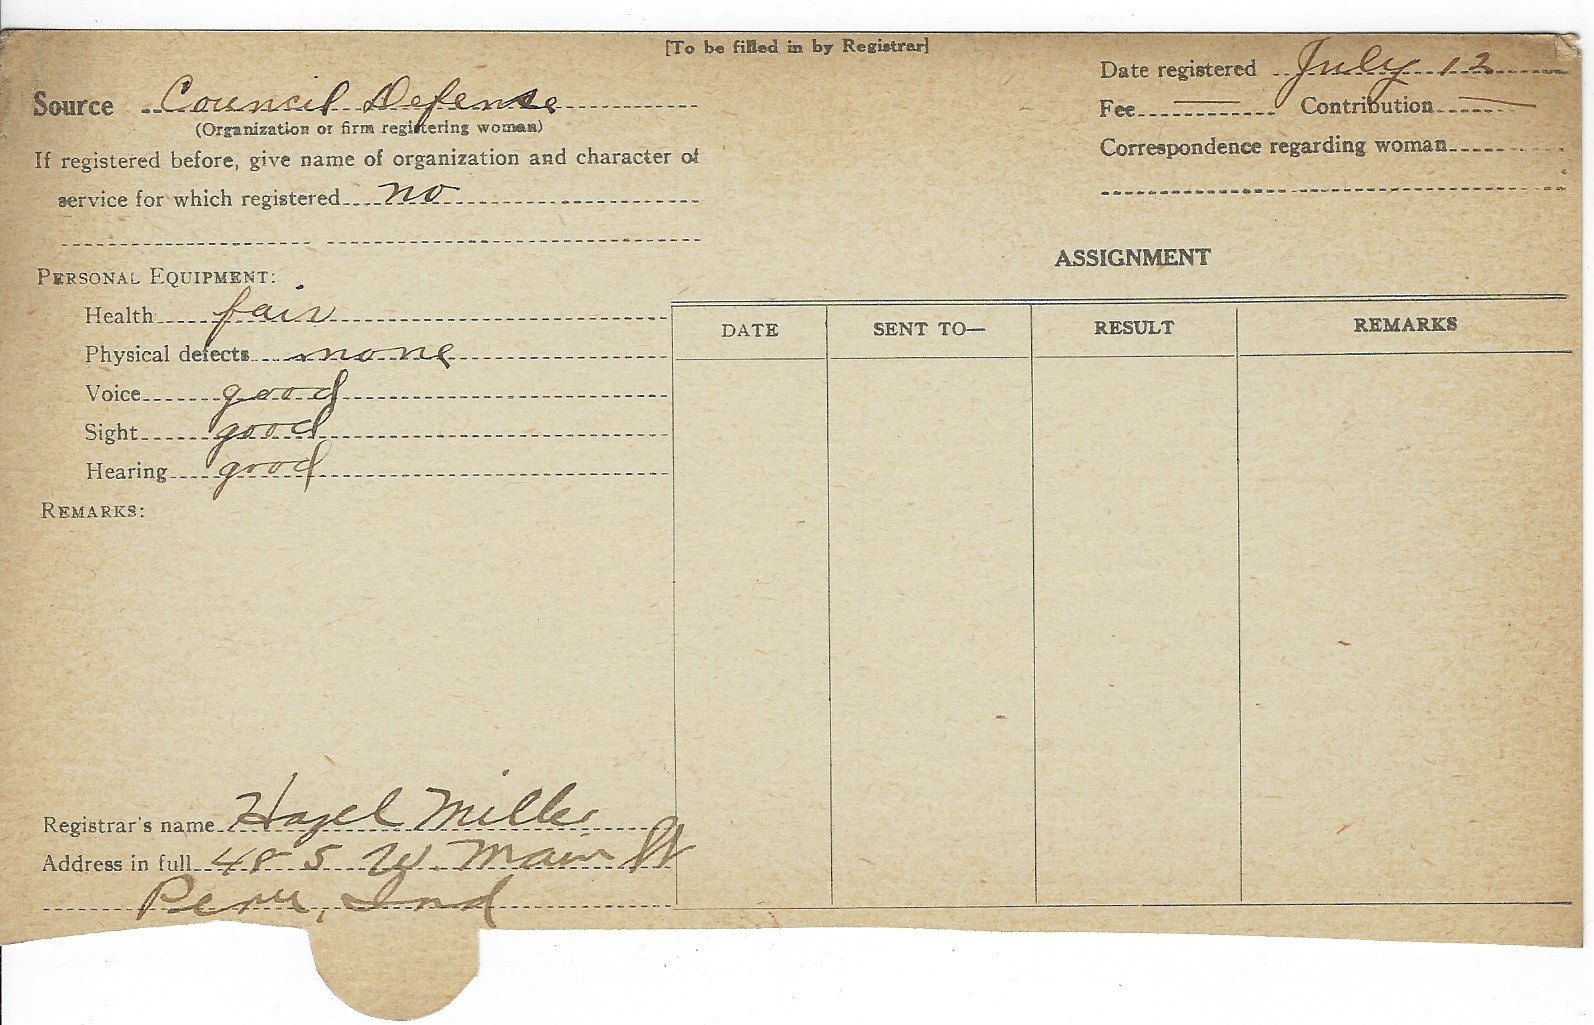 [To be filled in by Registrar]
Source Council Defense
(Organization or firm registering woman)
If registered before, give name of organization and character of
service for which registered no
Date registered July 12
Fee — Contribution —
Correspondence regarding woman
PERSONAL EQUIPMENT:
Health fair
Physical defects none
Voice good
Sight good
Hearing good
REMARKS:
ASSIGNMENT
DATE SENT TO— RESULT REMARKS
Registrar's name Hazel Miller
Address in full 485 W. Main St
Peru, Ind